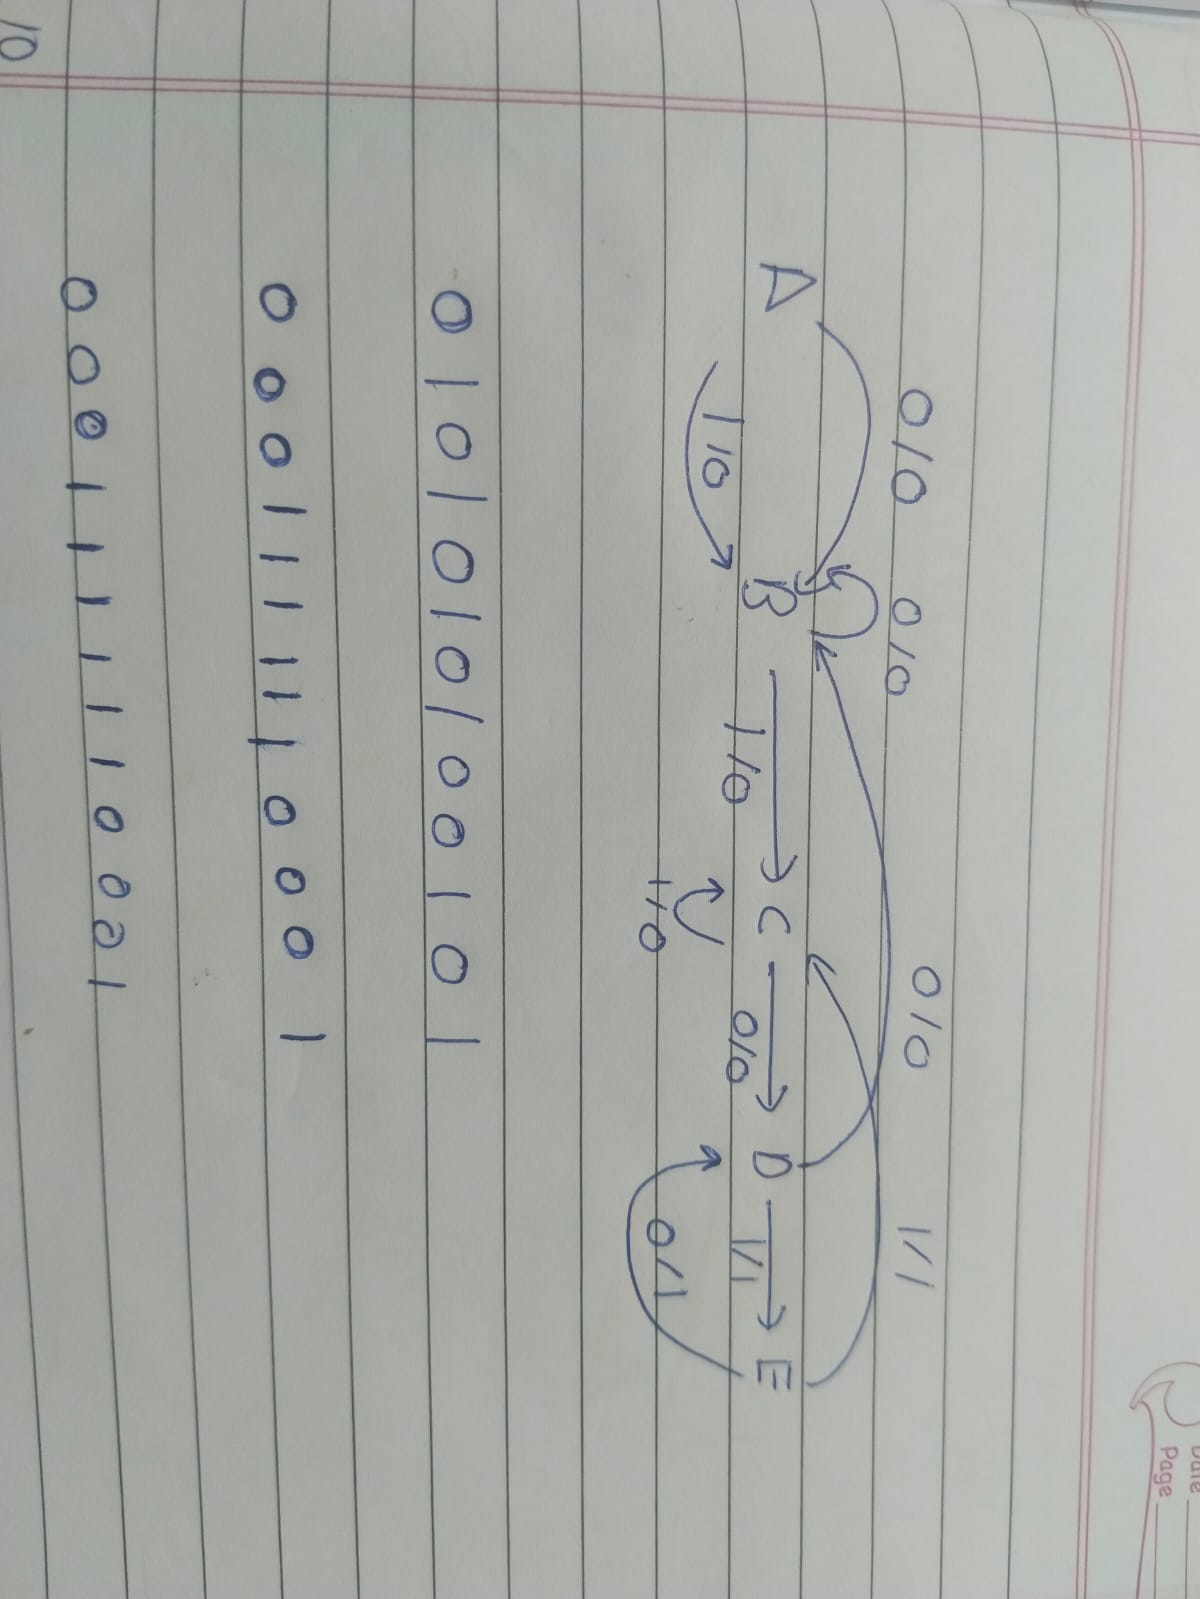 Date
Page
0/0 0/0 0/0 1/1
A B C D E
1/0 1/0 0/0 1/1
1/0 0/1
0 1 0 1 0 1 0 1 0 0 1 0 1
0 0 0 1 1 1 1 1 1 0 0 0 1
0 0 0 1 1 1 1 1 1 0 0 0 1
10